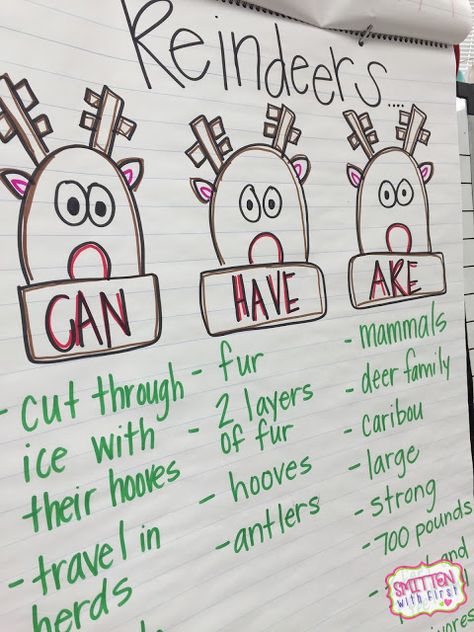 Reindeers....
CAN
- cut through
ice with
their hooves
- travel in
herds
HAVE
- fur
- 2 layers
of fur
- hooves
- antlers
ARE
- mammals
- deer family
- caribou
- large
- strong
- 700 pounds
SMITTEN
with FIRST